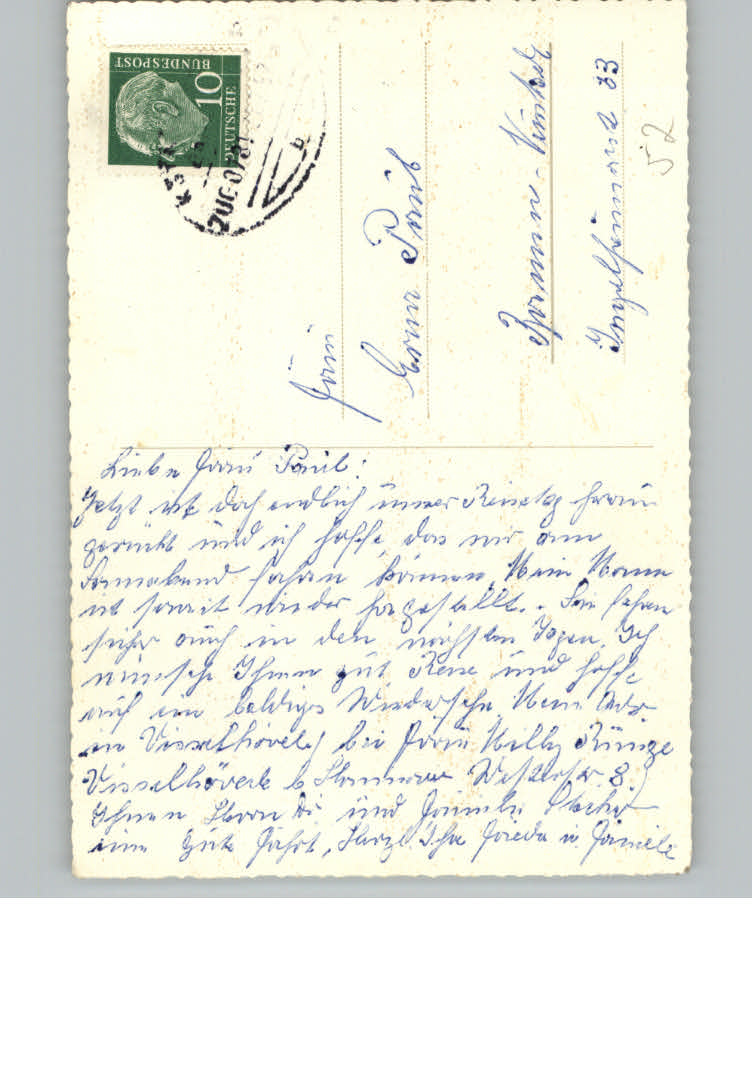 DEUTSCHE
BUNDESPOST
10
ZUG 0781
b
52
Frau
Erna Paul
Bremen -
33
Liebe Frau Paul!
Jetzt ist doch endlich unser Reisetag heran
gerückt und ich hoffe, das wir am
Sonnabend fahren können. Mein Mann
ist soweit wieder hergestellt. Sie fahren
sicher auch in den nächsten Tagen. Ich
wünsche Ihnen gut Reise und hoffe
auf ein baldiges Wiedersehn. Mein Adr.
in Visselhövede) bei Frau Milly Künze
Visselhövede b Hannover Westerstr. 8.)
Ihnen Herrn und Familie
eine gute Fahrt, Herzl Ihre Frieda u. Familie